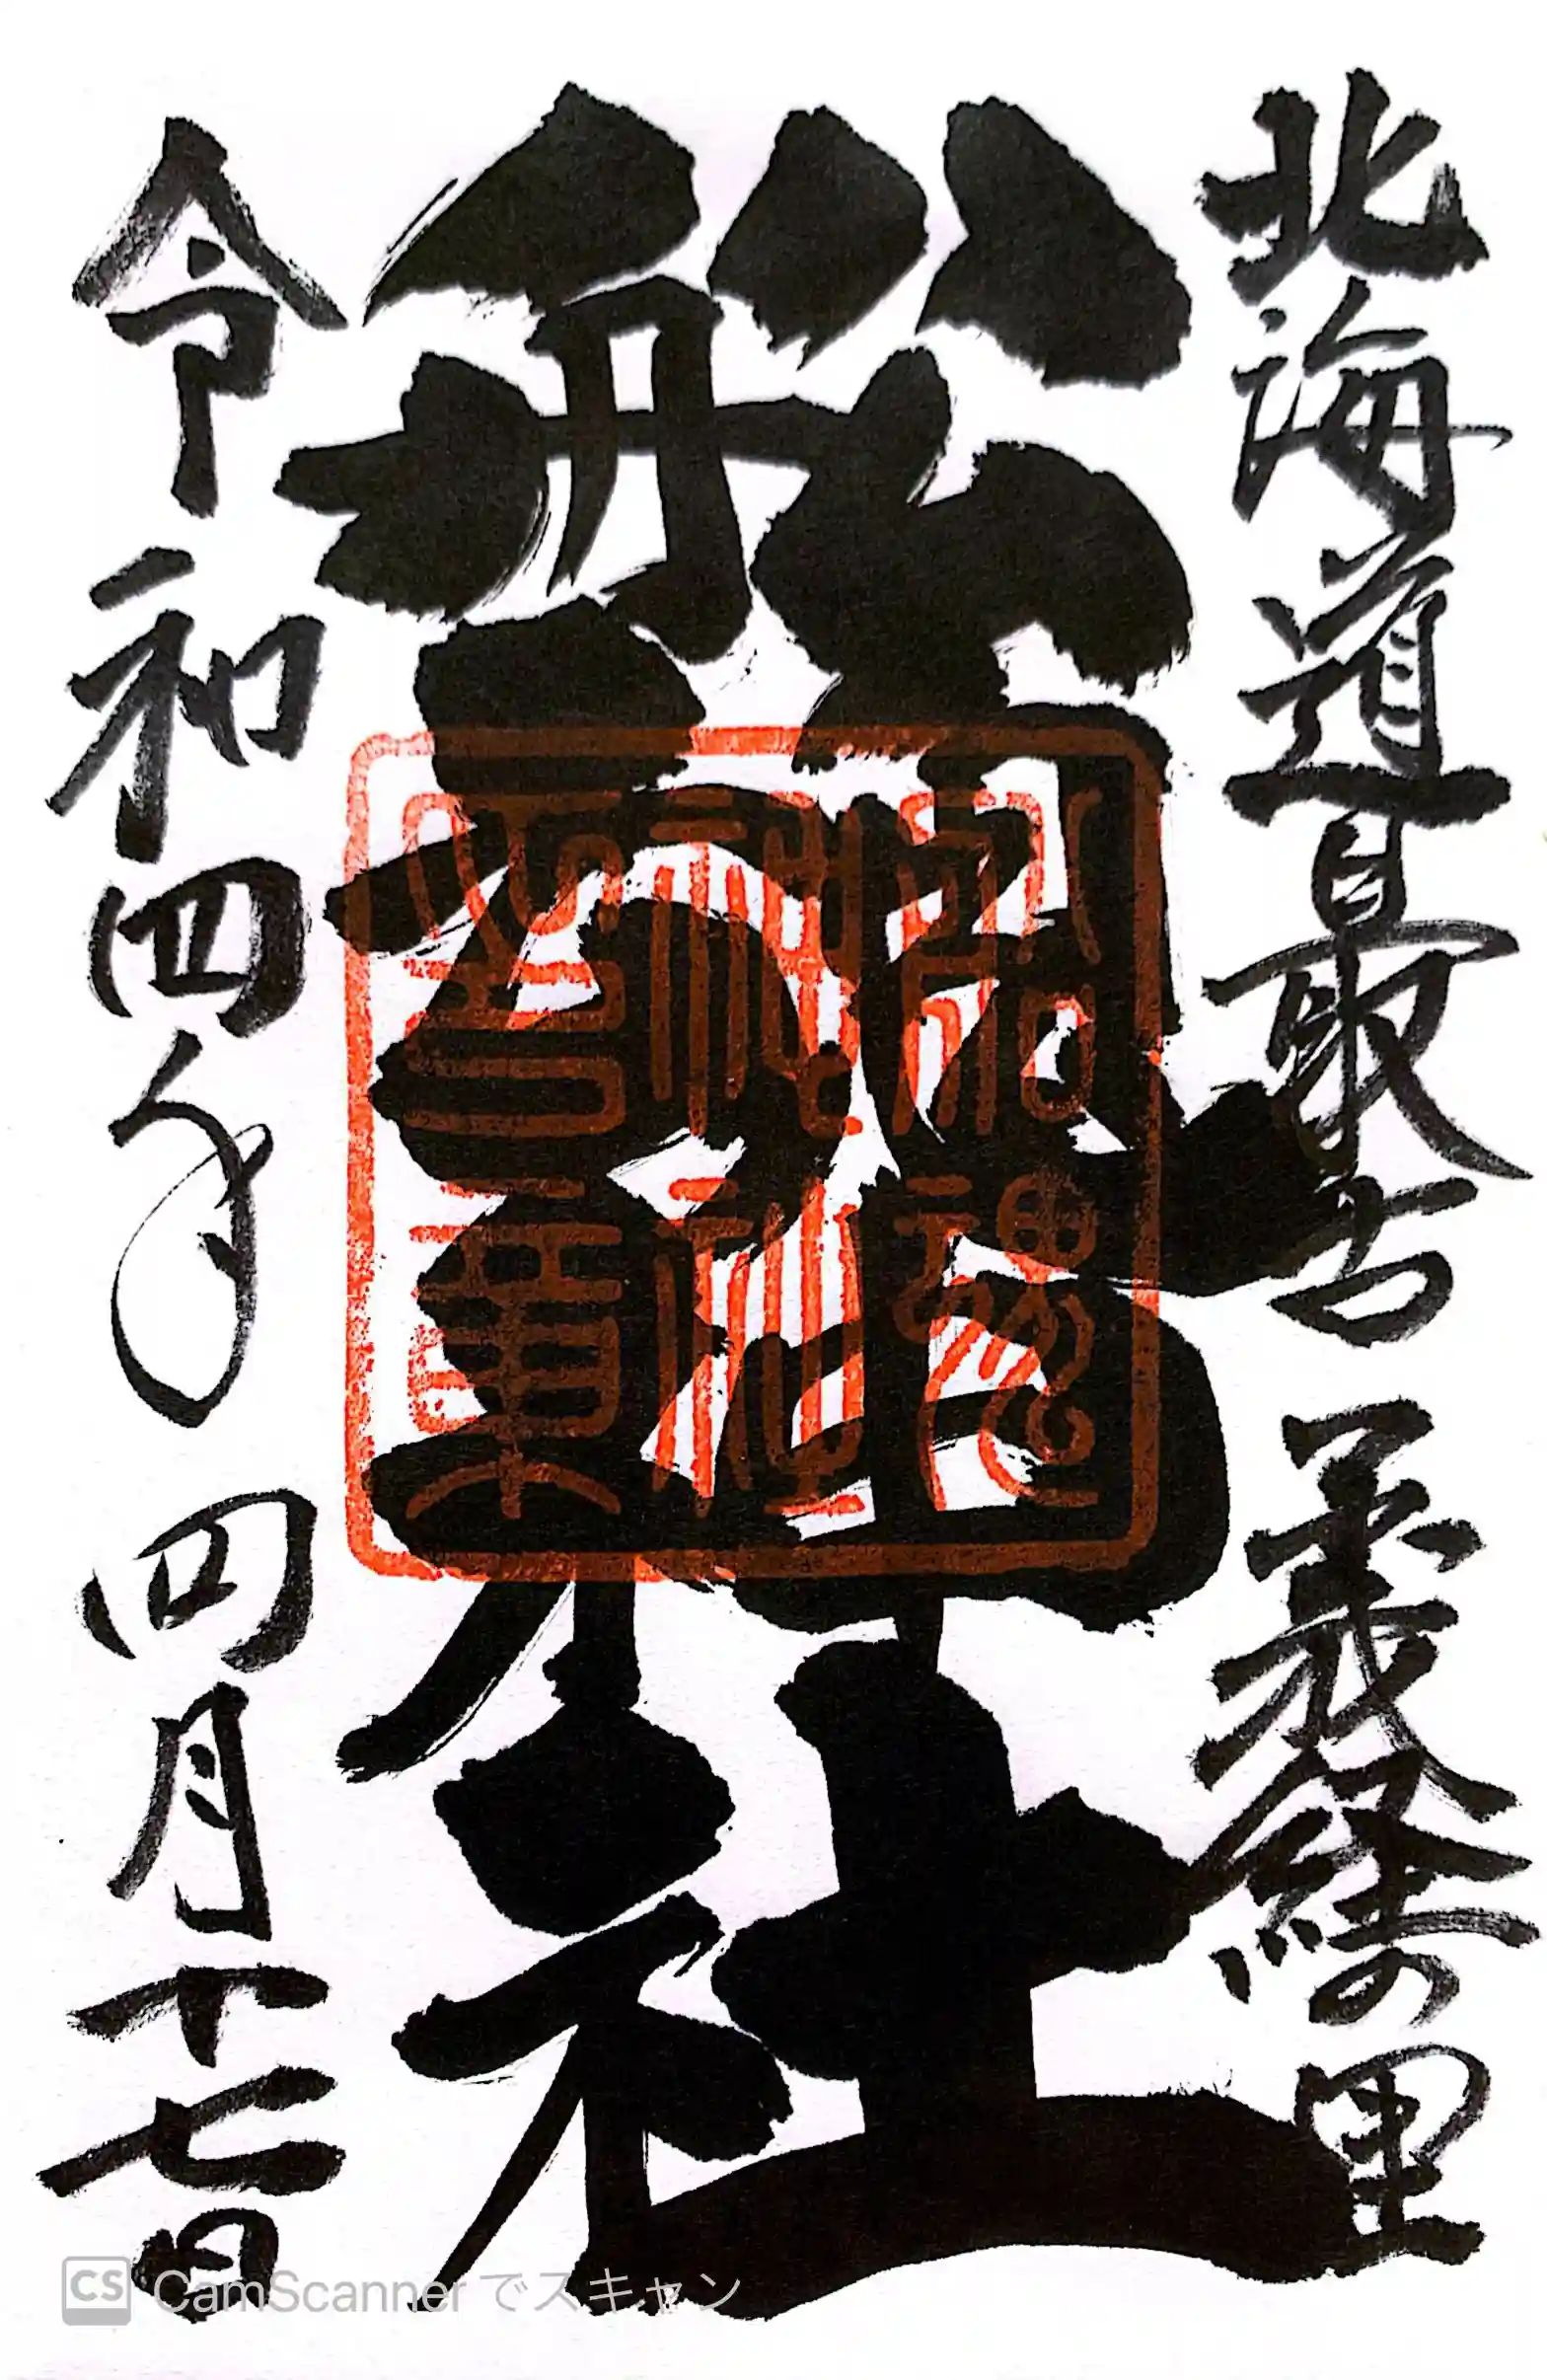 北海道最古 義経の里
船魂神社
令和四年 四月十七日
CS CamScanner でスキャン